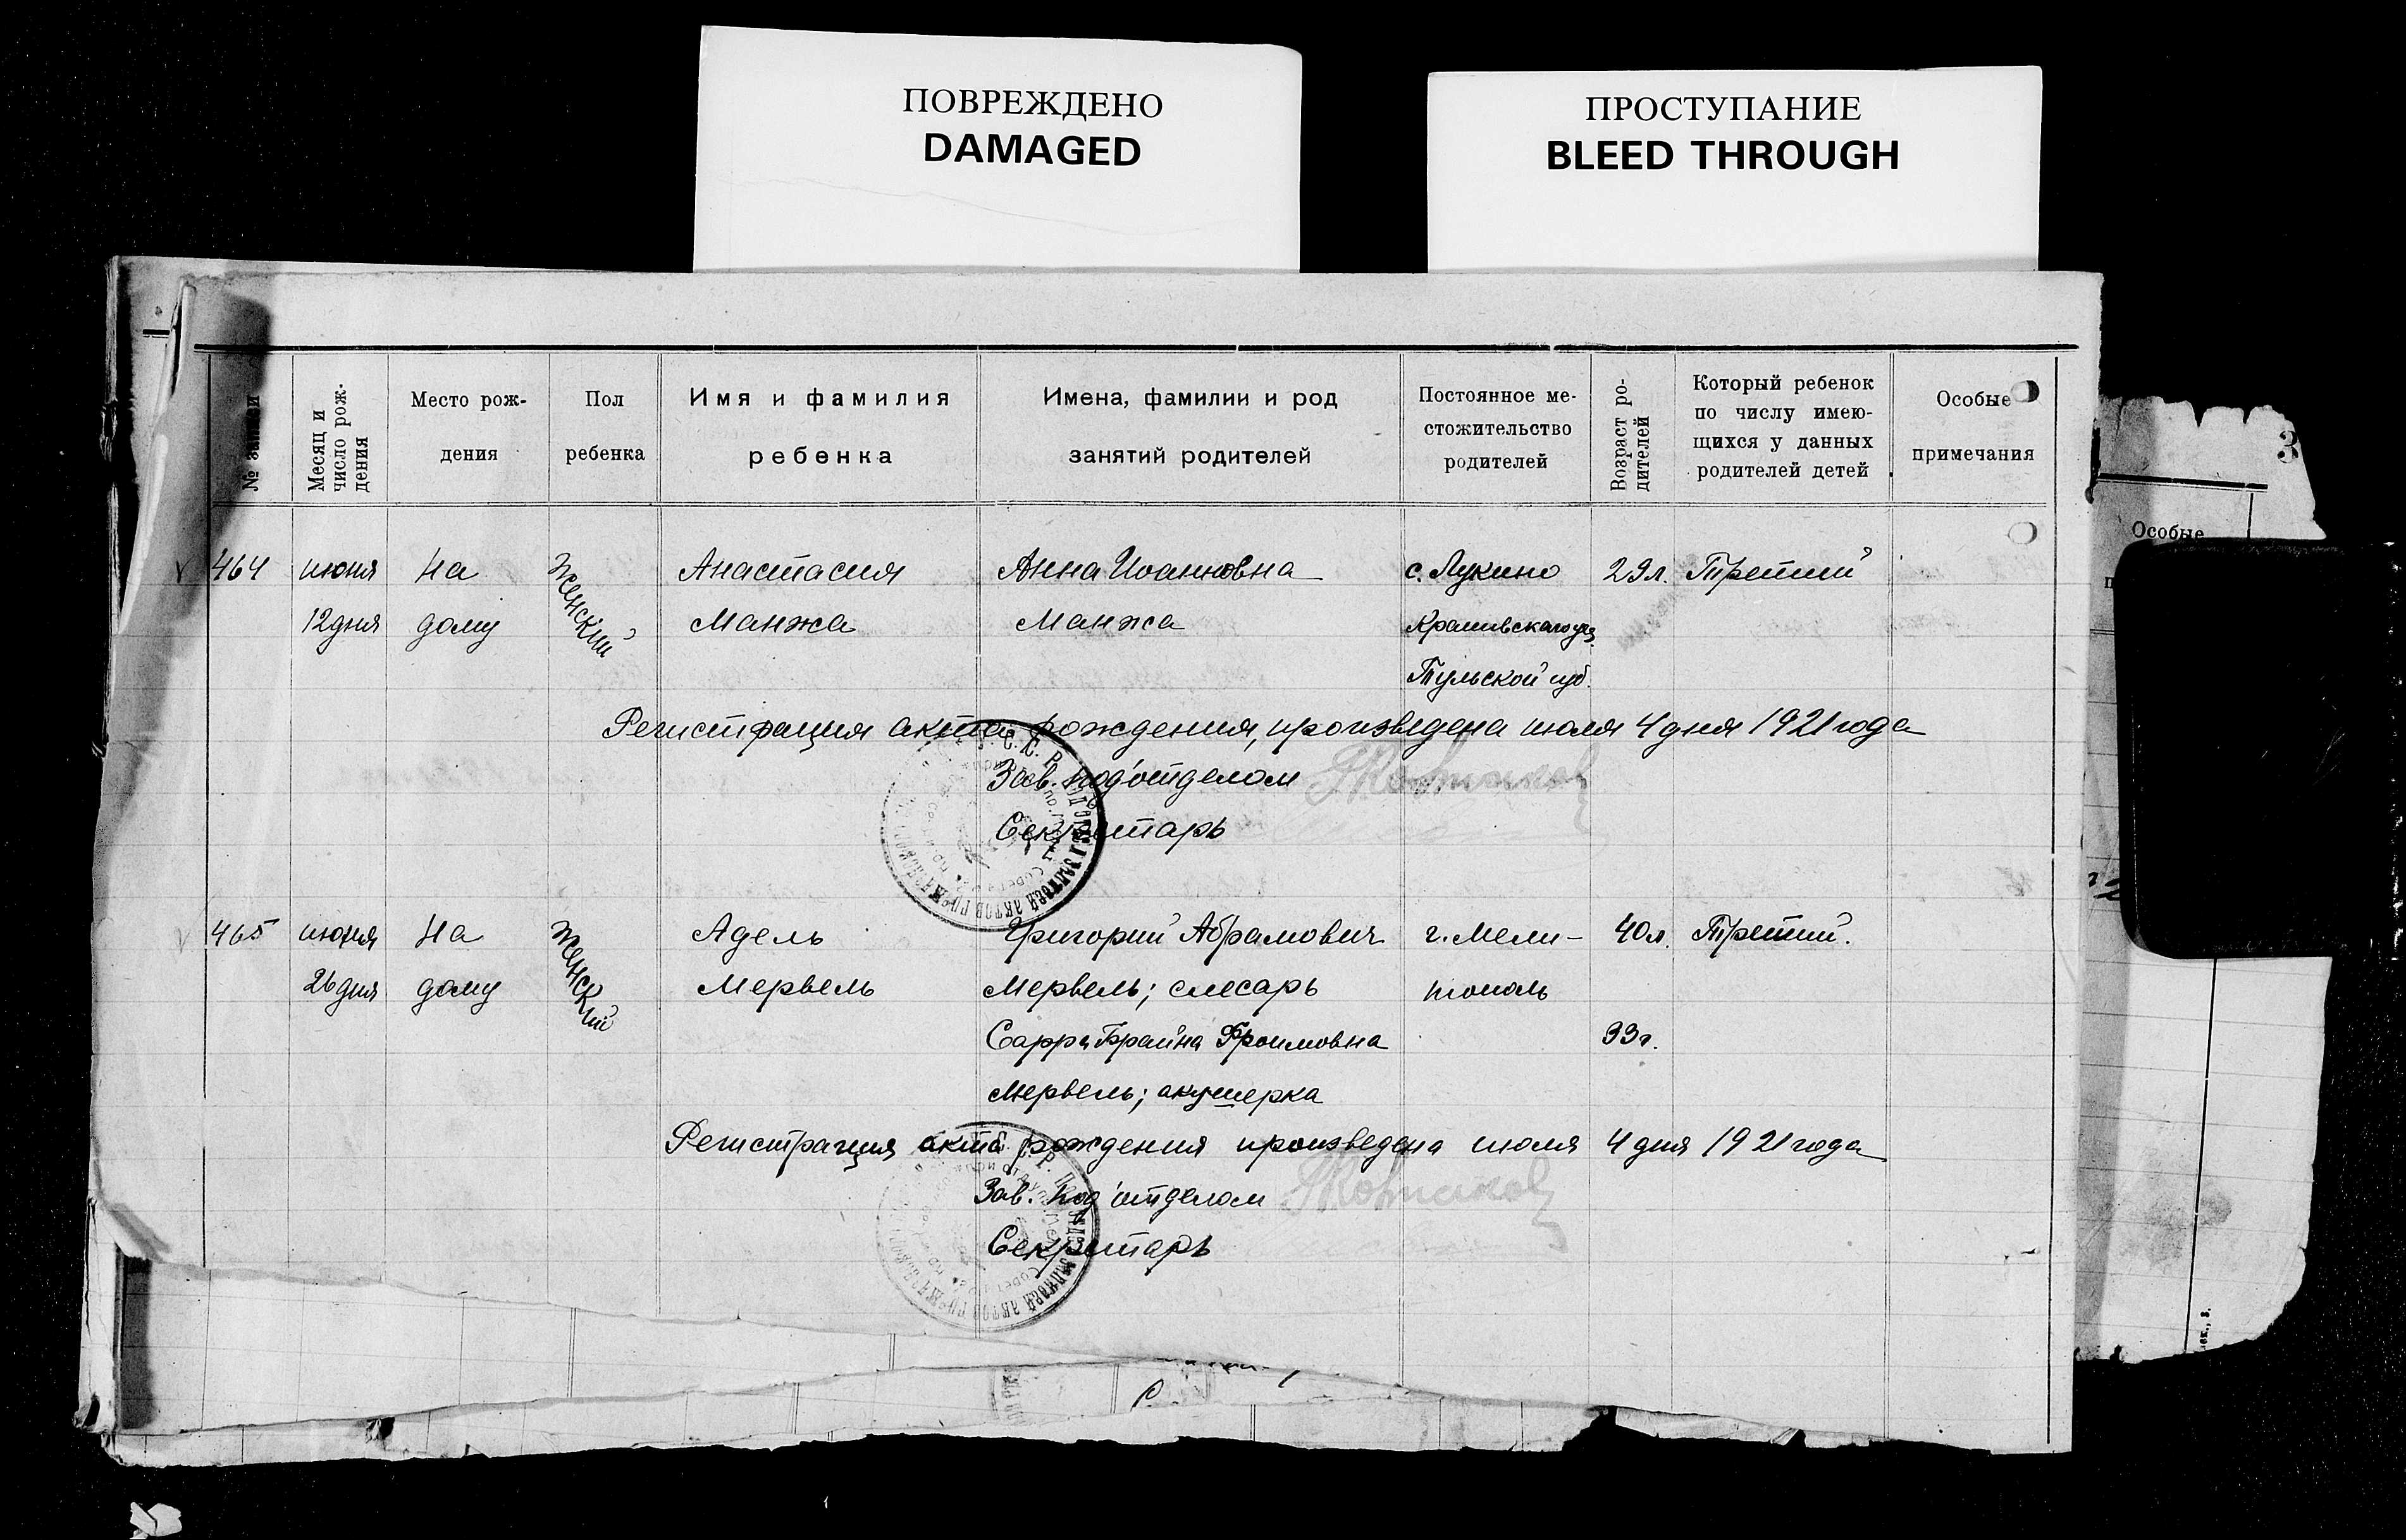 ПОВРЕЖДЕНО
DAMAGED
ПРОСТУПАНИЕ
BLEED THROUGH
№ записи
Месяц и число рож-
дения
Место рож-
дения
Пол
ребенка
Имя и фамилия
ребенка
Имена, фамилии и род
занятий родителей
Постоянное ме-
стожительство
родителей
Возраст ро-
дителей
Который ребенок
по числу имею-
щихся у данных
родителей детей
Особые
примечания
3
Особые
464 июня На Женский Анастасия Анна Иоанновна с. Лукино 29л. Третий
12 дня дому Манжа Манжа Крапивскаго уез.
Тульской губ.
Регистрация акта рождения, произведена июля 4 дня 1921 года
Зав. под'отделом
Секретарь
465 июня На Женский Адель Григорий Абрамович г. Мели- 40л. Третий.
26 дня дому Мервель Мервель; слесарь тополь
Сарра Брайна Фроимовна 33г.
Мервель; акушерка
Регистрация акта рождения произведена июля 4 дня 1921 года
Зав. под'отделом
Секретарь